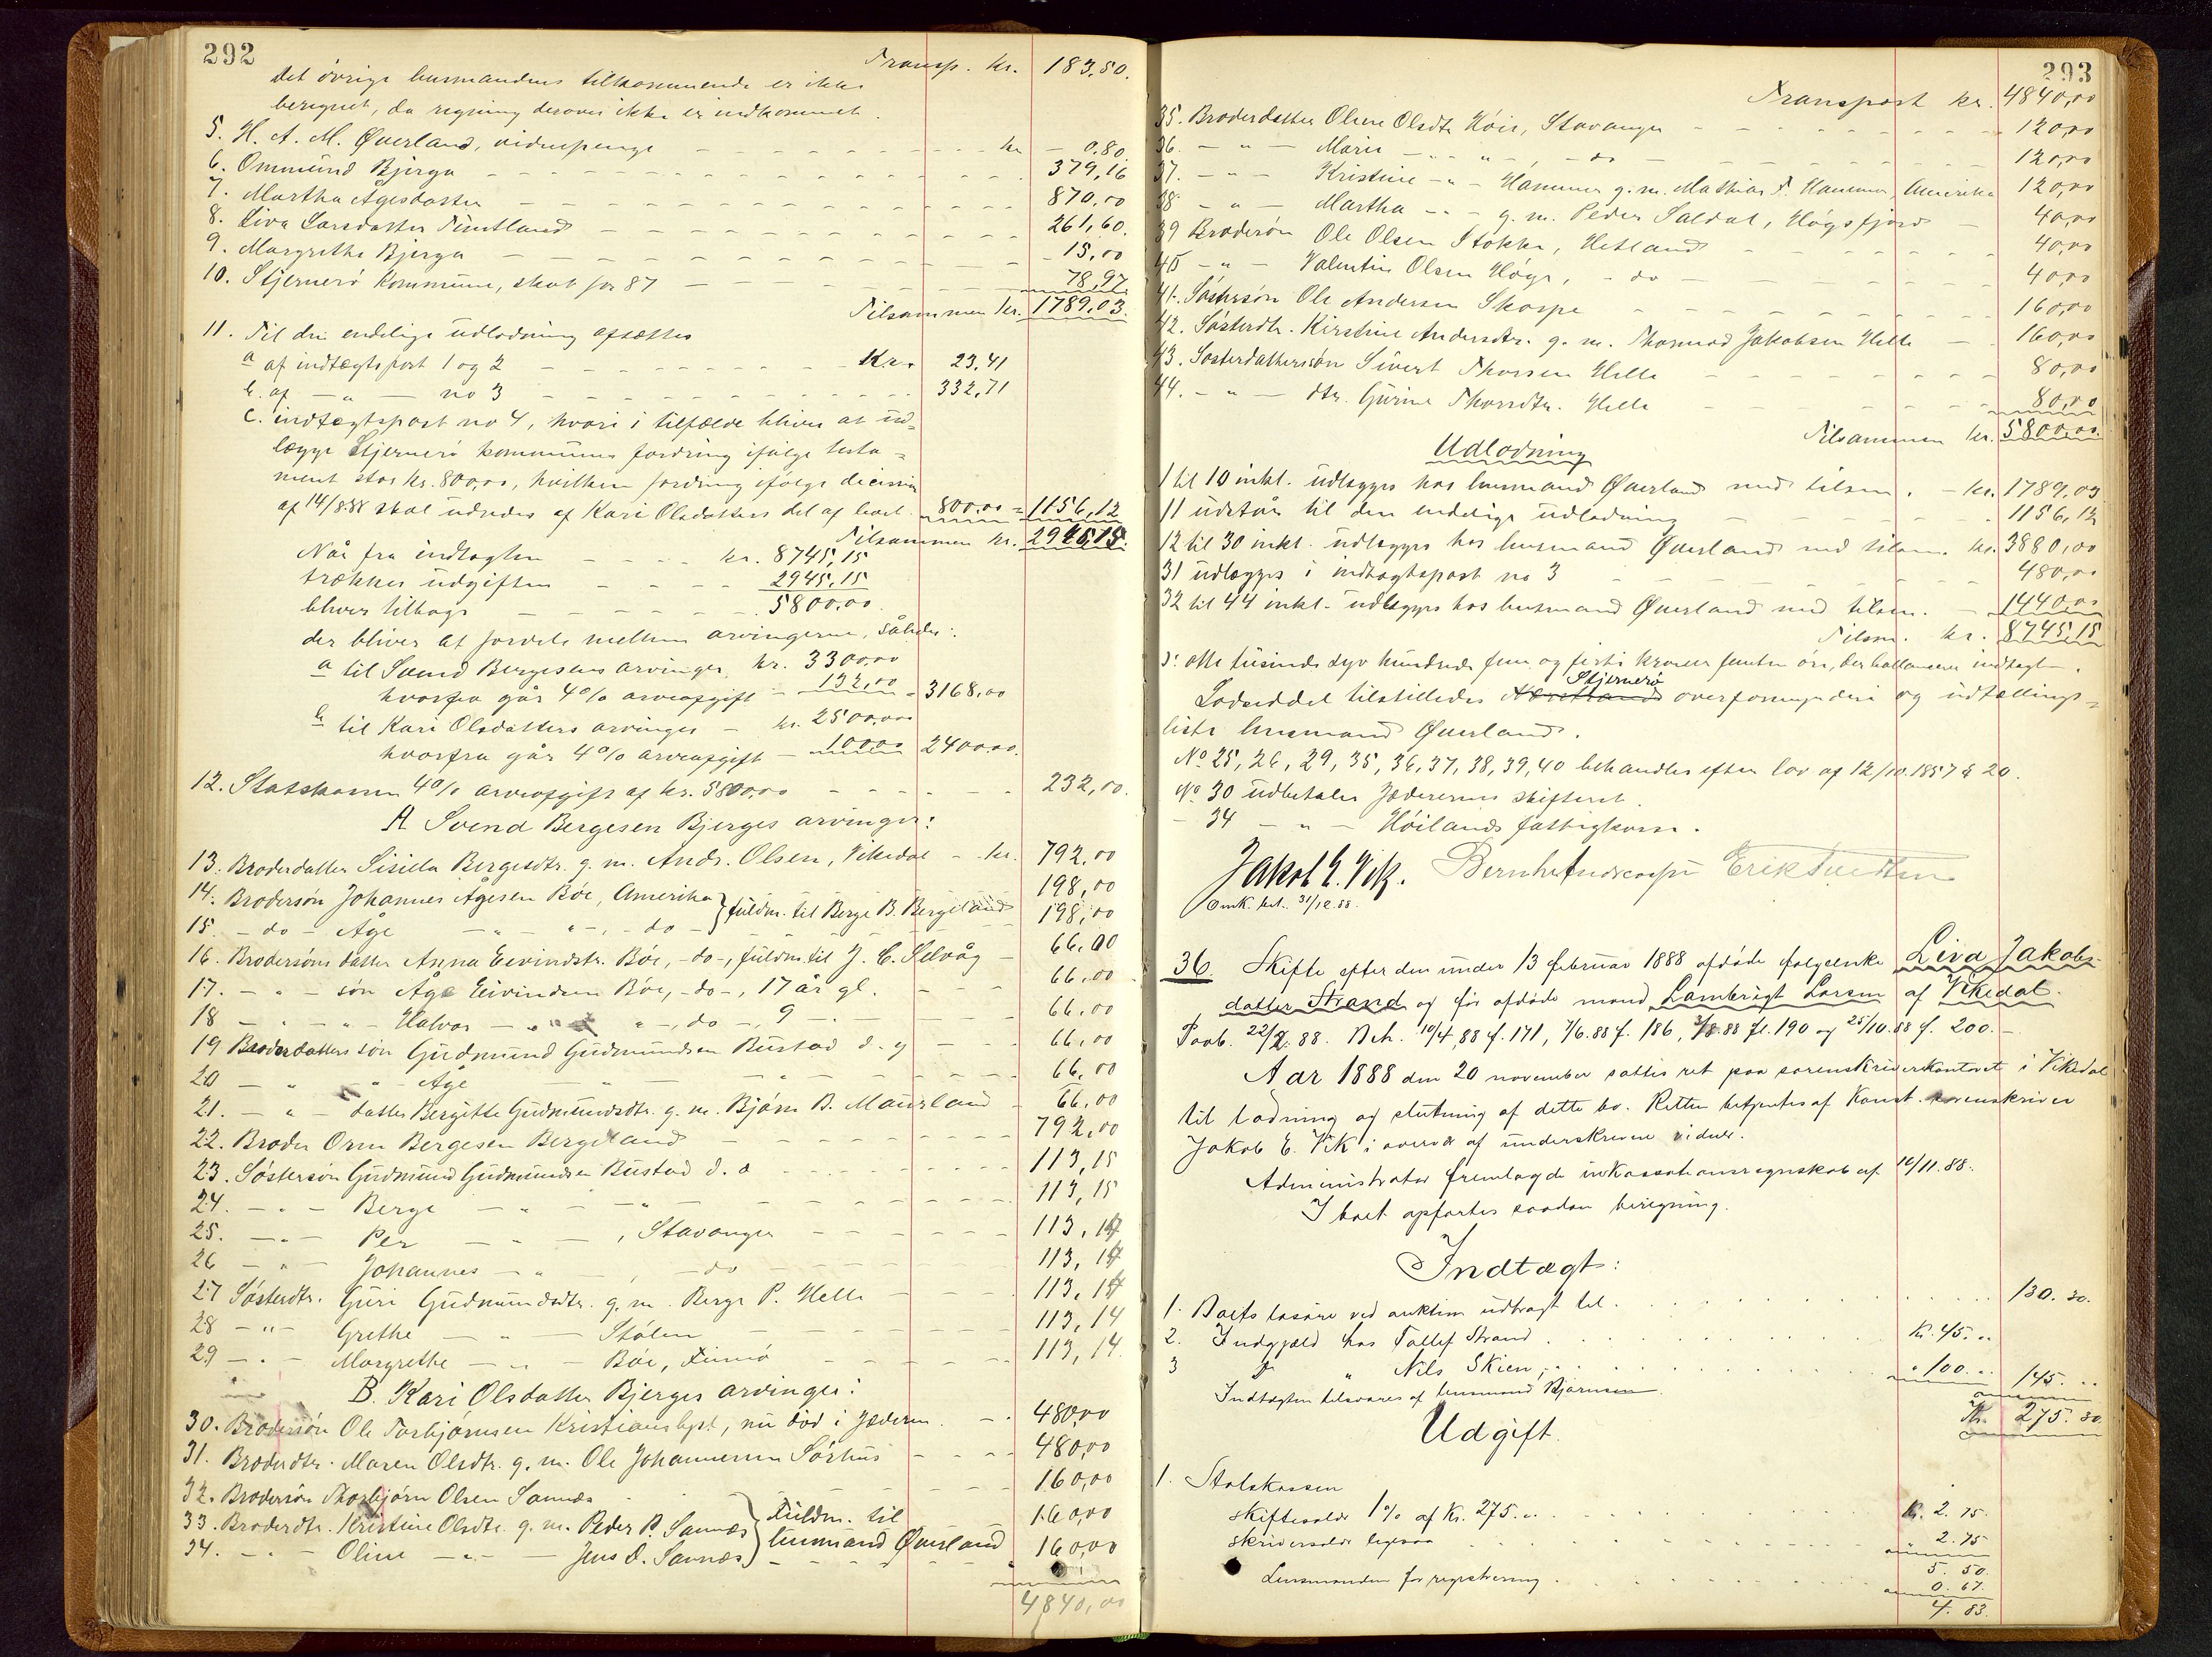 292
Transp. kr. 183,50.
Det övrige lensmandens tilkommende er ikke
beregnet, da regning derover ikke er indkommet.
5. H. A. M. Øverland, vidnepenge - - - kr - 0.80
6. Ommund Bjerga - - - 379,16
7. Martha Ågesdatter - - - 870,00
8. Liva Larsdatter Timtland - - - 261,60.
9. Margrethe Bjerga - - - 15,00
10. Stjernerö Kommune, skat for 87 - - - 78,97.
Tilsammen kr. 1789,03.
11. Til den endelige udlodning afsættes
a af indtægtspost 1 og 2 - - - Kr. 23,41
b. af - " - no 3 - - - 332,71
c. indtægtspost no 4, hvori i tilfælde bliver at ud=
lægge Stjernerö kommunes fordring ifølge testa=
ment stor kr. 800,00, hvilken fordring ifølge decision
af 14/8 88 skal udredes af Kari Olsdatters del af boet 800.00 = 1156,12
Tilsammen kr. 2945,15.
Når fra indtægten - - - kr. 8745,15
trækkes udgiften - - - 2945,15
bliver tilbage - - - 5800,00
der bliver at fordele mellem arvingerne, således:
a til Svend Bergesens arvinger kr. 3300,00
hvorfra går 4% arveafgift - 132,00 = 3168,00
b til Kari Olsdatters arvinger - kr. 2500,00
hvorfra går 4% arveafgift - 100,00 2400,00.
12. Statskassen 4% arveafgift af kr. 5800,00 - - - 232,00.
A Svend Bergesen Bjerges arvinger:
13. Broderdatter Sisilla Bergesdtr. g. m. Andr. Olsen, Vikedal - kr. 792,00
14. Brodersön Johannes Ågesen Böe, Amerika } fuldm. til Berge B. Bergeland 198,00
15. - do - Åge - " - " -, - do - 198,00
16. Brodersöns datter Anna Eivindstr. Böe, - do -, fuldm. til J. C. Selvåg - 66,00
17. - " - sön Åge Eivindsen Böe, - do -, 17 år gl. - - - 66,00
18 - " - " - Halvor - " - " -, do -, 9 - - - 66,00
19 Broderdatters sön Gudmund Gudmundsen Bustad d. y - - - 66,00
20 - " - " - Åge - " - " - - - 66,00
21. - " - datter Bergitte Gudmundsdtr. g. m. Bjørn B. Maurland - 66,00
22. Broder Orm Bergesen Bergeland - - - 792,00
23. Söstersön Gudmund Gudmundsen Bustad d. æ - - - 113,15
24. - " - Berge - " - - " - - - 113,15
25. - " - Per - " - , Stavanger - - - 113,14
26 - " - Johannes - " - , - do - - - 113,14
27 Sösterdtr. Guri Gudmundsdtr. g. m. Berge P. Helle - 113,14
28 - " - Grethe - " - Stölen - - - 113,14
29 - " - Margrethe - " - Böe, Finnö - - - 113,14.
B. Kari Olsdatter Bjerges arvinger:
30. Brodersön Ole Torbjørnsen Kristianslyst, nu död i Jæderen. - - 480,00
31. Broderdtr. Maren Olsdtr. g. m. Ole Johannesen Sörhus - - - 480,00
32. Brodersön Thorbjørn Olsen Sannæs - - - 160,00
33. Broderdtr. Kristine Olsdtr. g. m. Peder P. Sannæs } Fuldm. til 160,00
34. - " - Oline - " - Jens O. Sannæs } lensmand Øverland 160,00
4840,00
293
Transport kr. 4840,00
35. Broderdatter Olene Olsdtr Höie, Stavanger - - - 120,00
36. - " - Marie - " - " -, - do - - - 120,00
37. - " - Kristine - " - Hammer g. m. Mathias T. Hammer, Amerika 120,00
38 - " - Martha - " - g. m. Peder Saldal, Högsfjord - 40,00
39 Brodersön Ole Olsen Stokke, Hetland - - - 40,00
40 - " - Valentin Olsen Høge, - do - - - 40,00
41. Söstersön Ole Andersen Skorpe - - - 160,00
42. Sösterdtr. Kirstine Andersdtr. g. m. Thormod Jakobsen Helle - - 160,00
43. Sösterdatterssön Sivert Thorsen Helle - - - 80,00
44. - " - dtr. Gurine Thorsdtr. Helle - - - 80,00
Tilsammen kr. 5800,00.
Udlodning
1 til 10 inkl. udlægges hos lensmand Øverland med tilsm. - kr. 1789,03
11 udstår til den endelige udlodning - - - 1156,12
12 til 30 inkl. udlægges hos lensmand Øverland med tilsm. kr. 3880,00
31 udlægges i indtægtspost no 3 - - - 480,00
32 til 44 inkl. udlægges hos lensmand Øverland med tilsm. - 1440,00
Tilsm. kr. 8745,15
d: otte tusinde syv hundrede fem og firti kroner femten öre, der ballancerer indtægt.
Stjernerö
Lodseddel tilstilledes overformynderi og udtællings=
liste lensmand Øverland.
No 25, 26, 29, 35, 36, 37, 38, 39, 40 behandles efter lov af 12/10.1857 § 20.
No 30 udbetales Jæderens skifteret.
- 34 - " - Höilands fattigkasse.
Jakob E. Vik.
31/12.88.
36. Skifte efter den under 13 februar 1888 afdöde folgeenke Liva Jakobs-
datter Strand og för afdöde mand Lambrigt Larsen af Vikedal.
22/2.88. Beh. 10/4.88 f. 171, 7/6.88 f. 186, 3/8.88 f. 190 og 25/10.88 f. 200.-
Aar 1888 den 20 november sattes ret paa sorenskriverkontoret i Vikedal
til lodning og slutning af dette bo. Retten betjentes af Konst. sorenskriver
Jakob E. Vik i overvær af underskrevne vidner.
Administrator fremlagde inkassationsregnskab af 10/11.88.
I boet opførtes saadan beregning.
Indtægt:
1. Boets lösöre ved auktion udbragt til . . . 130.30.
2. Indgjæld hos Tollef Strand . . . Kr. 45. "
3 " " Nils Skien . . . " 100. " 145. "
Indtægten tilsvares af lensmand Bjørnsen. Kr. 275.30
Udgift.
1. Statskassen
skiftesalær 1% af Kr. 275. " . . . Kr. 2.75.
skriversalær ligesaa . . . 2.75
5.50.
Lensmanden for registrering . . . 0.67.
4.83.